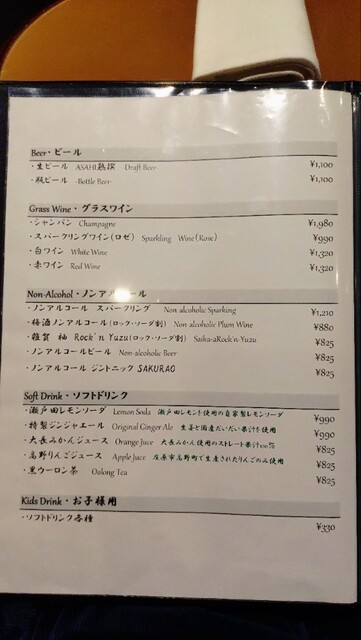 Beer・ビール
・生ビール ASAHI熟撰 -Draft Beer- ¥1,100
・瓶ビール -Bottle Beer- ¥1,100
Grass Wine・グラスワイン
・シャンパン Champagne ¥1,980
・スパークリングワイン(ロゼ) Sparkling Wine(Rose) ¥990
・白ワイン White Wine ¥1,320
・赤ワイン Red Wine ¥1,320
Non-Alcohol・ノンアルコール
・ノンアルコール スパークリング Non alcoholic Sparking ¥1,210
・梅酒ノンアルコール(ロック・ソーダ割) Non alcoholic Plum Wine ¥880
・雑賀 柚 Rock'n Yuzu(ロック・ソーダ割) Saika-aRock'n-Yuzu ¥825
・ノンアルコールビール Non-alcoholic Beer ¥825
・ノンアルコール ジントニック SAKURAO ¥825
Soft Drink・ソフトドリンク
・瀬戸田レモンソーダ Lemon Soda 瀬戸田レモンを使用の自家製レモンソーダ ¥990
・特製ジンジャエール Original Ginger Ale 生姜と酒造だいだい果汁を使用 ¥990
・大長みかんジュース Orange Juce 大長みかん使用のストレート果汁100% ¥825
・高野りんごジュース Apple Juce 庄原市高野町で生産されたりんごのみ使用 ¥825
・黒ウーロン茶 Oolong Tea ¥825
Kids Drink・お子様用
・ソフトドリンク各種 ¥330